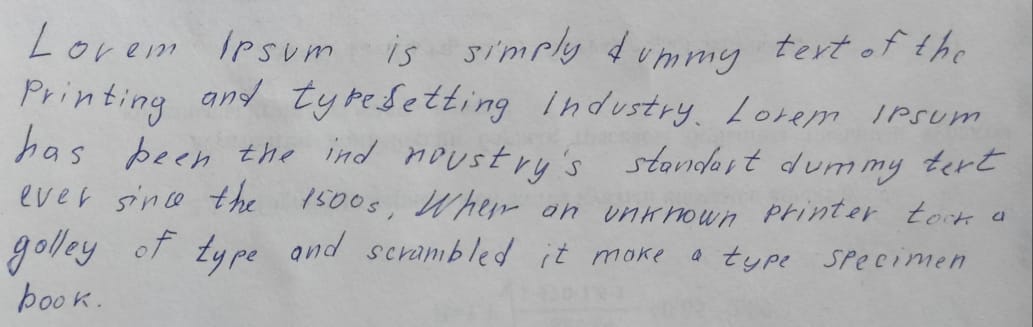 Lorem Ipsum is simply dummy tert of the
Printing and typesetting Industry. Lorem Ipsum
has been the ind noustry's standart dummy tert
ever since the 1500s, When an unknown printer took a
golley of type and scrambled it moke a type specimen
book.